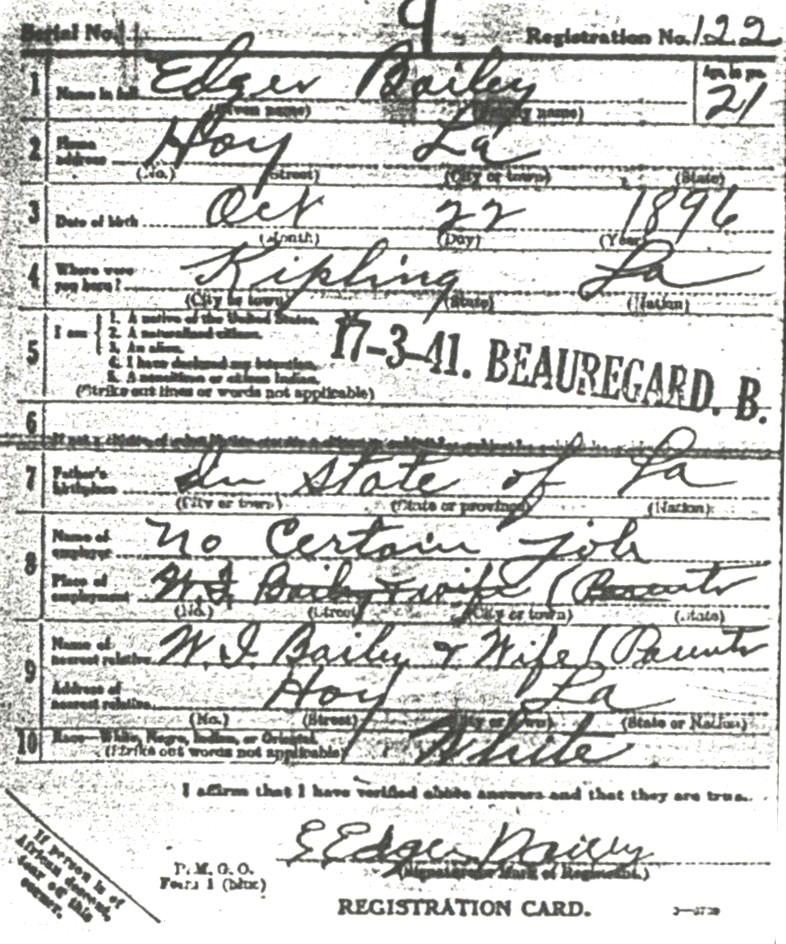 9
Serial No. Registration No. 122
1 Name in full Edger Bailey Age, in yrs. 21
(Given name) (Family name)
2 Home address Hoy La
(No.) (Street) (City or town) (State)
3 Date of birth Oct 22 1896
(Month) (Day) (Year)
4 Where were you born? Kipling La
(City or town) (State) (Nation)
5 I am
1. A native of the United States.
2. A naturalized citizen.
3. An alien.
4. I have declared my intention.
5. A noncitizen or citizen Indian.
(Strike out lines or words not applicable)
17-3-41. BEAUREGARD. B.
6
If not a citizen, of what Nation are you a citizen or subject?
7 Father's birthplace In State of La
(City or town) (State or province) (Nation)
8 Name of employer No Certain job
Place of employment W. I Baily & wife (Parents
(No.) (Street) (City or town) (State)
9 Name of nearest relative W. I Baily & Wife (Parents
Address of nearest relative Hoy La
(No.) (Street) (City or town) (State or Nation)
10 Race—White, Negro, Indian, or Oriental White
(Strike out words not applicable)
I affirm that I have verified above answers and that they are true.
E Edger Bailey
(Signature or Mark of Registrant.)
P. M. G. O.
Form 1 (blue)
REGISTRATION CARD.
If person is of
African descent,
tear off this
corner.